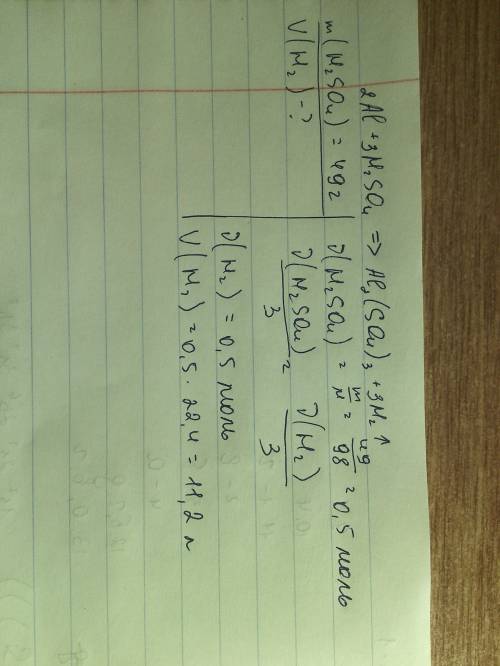 2Al + 3H₂SO₄ => Al₂(SO₄)₃ + 3H₂↑
m(H₂SO₄) = 49г
V(H₂) - ?
ν(H₂SO₄) = m/M = 49/98 = 0,5 моль
ν(H₂SO₄)/3 = ν(H₂)/3
ν(H₂) = 0,5 моль
V(H₂) = 0,5 · 22,4 = 11,2 л